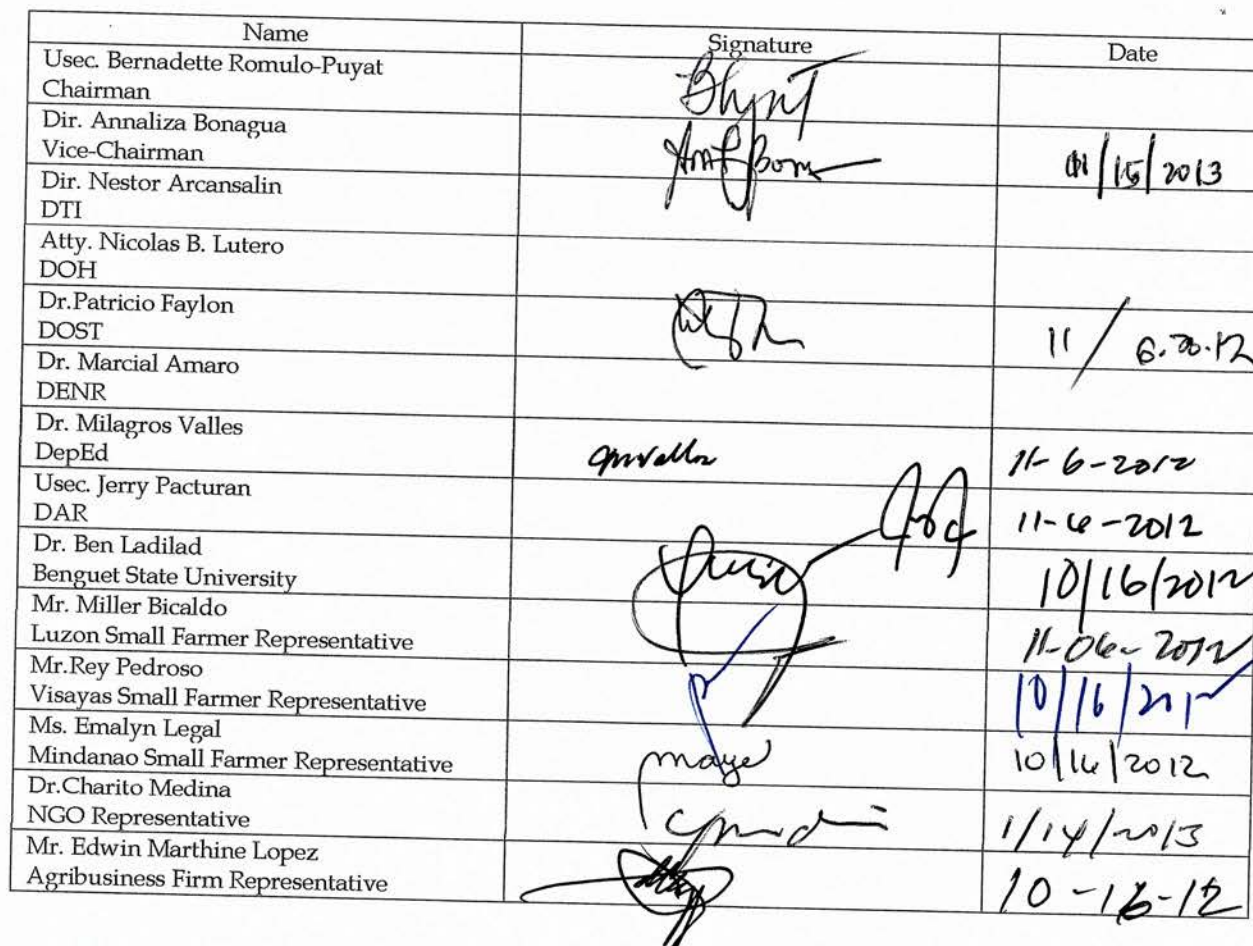 Name Signature Date
Usec. Bernadette Romulo-Puyat
Chairman
Dir. Annaliza Bonagua
Vice-Chairman 01/15/2013
Dir. Nestor Arcansalin
DTI
Atty. Nicolas B. Lutero
DOH
Dr.Patricio Faylon
DOST 11/
Dr. Marcial Amaro
DENR
Dr. Milagros Valles
DepEd 11-6-2012
Usec. Jerry Pacturan
DAR 11-6-2012
Dr. Ben Ladilad
Benguet State University 10/16/2012
Mr. Miller Bicaldo
Luzon Small Farmer Representative 11-06-2012
Mr.Rey Pedroso
Visayas Small Farmer Representative 10/16/2012
Ms. Emalyn Legal
Mindanao Small Farmer Representative 10/16/2012
Dr.Charito Medina
NGO Representative 1/14/2013
Mr. Edwin Marthine Lopez
Agribusiness Firm Representative 10-16-12